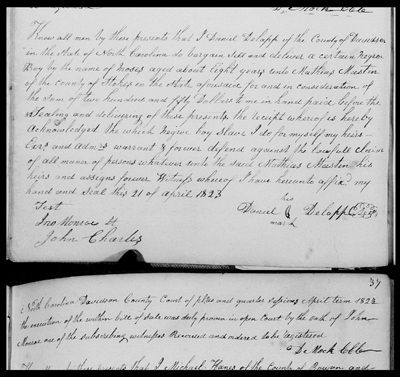 D. Mock Clk
Know all men by these presents that I Daniel Delapp of the County of Davidson
in the State of North Carolina do bargain sell and deliver a certain Negroe
Boy by the name of Moses aged about Eight years unto Mathias Masten
of the County of Stokes in the State aforesaid for and in consideration of
the Sum of two hundred and fifty Dollars to me in hand paid before the
Sealing and delivering of these presents the receipt whereof is hereby
Acknowledged the which Negroe boy Slave I do for myself my heirs
Exrs and Admrs warrant & forever defend against the lawfull Claim
of all manner of persons whatever unto the said Mathias Masten his
heirs and assigns forever Witness whereof I have hereunto affixd my
hand and Seal this 21 of April 1823
Test
his
Daniel Delapp
mark
Jno Monroe
John Charles
37
North Carolina Davidson County Court of pleas and quarter sessions April term 1823
the execution of the within bill of sale was duly proven in open Court by the oath of John
Monroe one of the subscribing witnesses thereunto and ordered to be registered
D. Mock Clk
that I Michael Hanes of the County of Rowan and